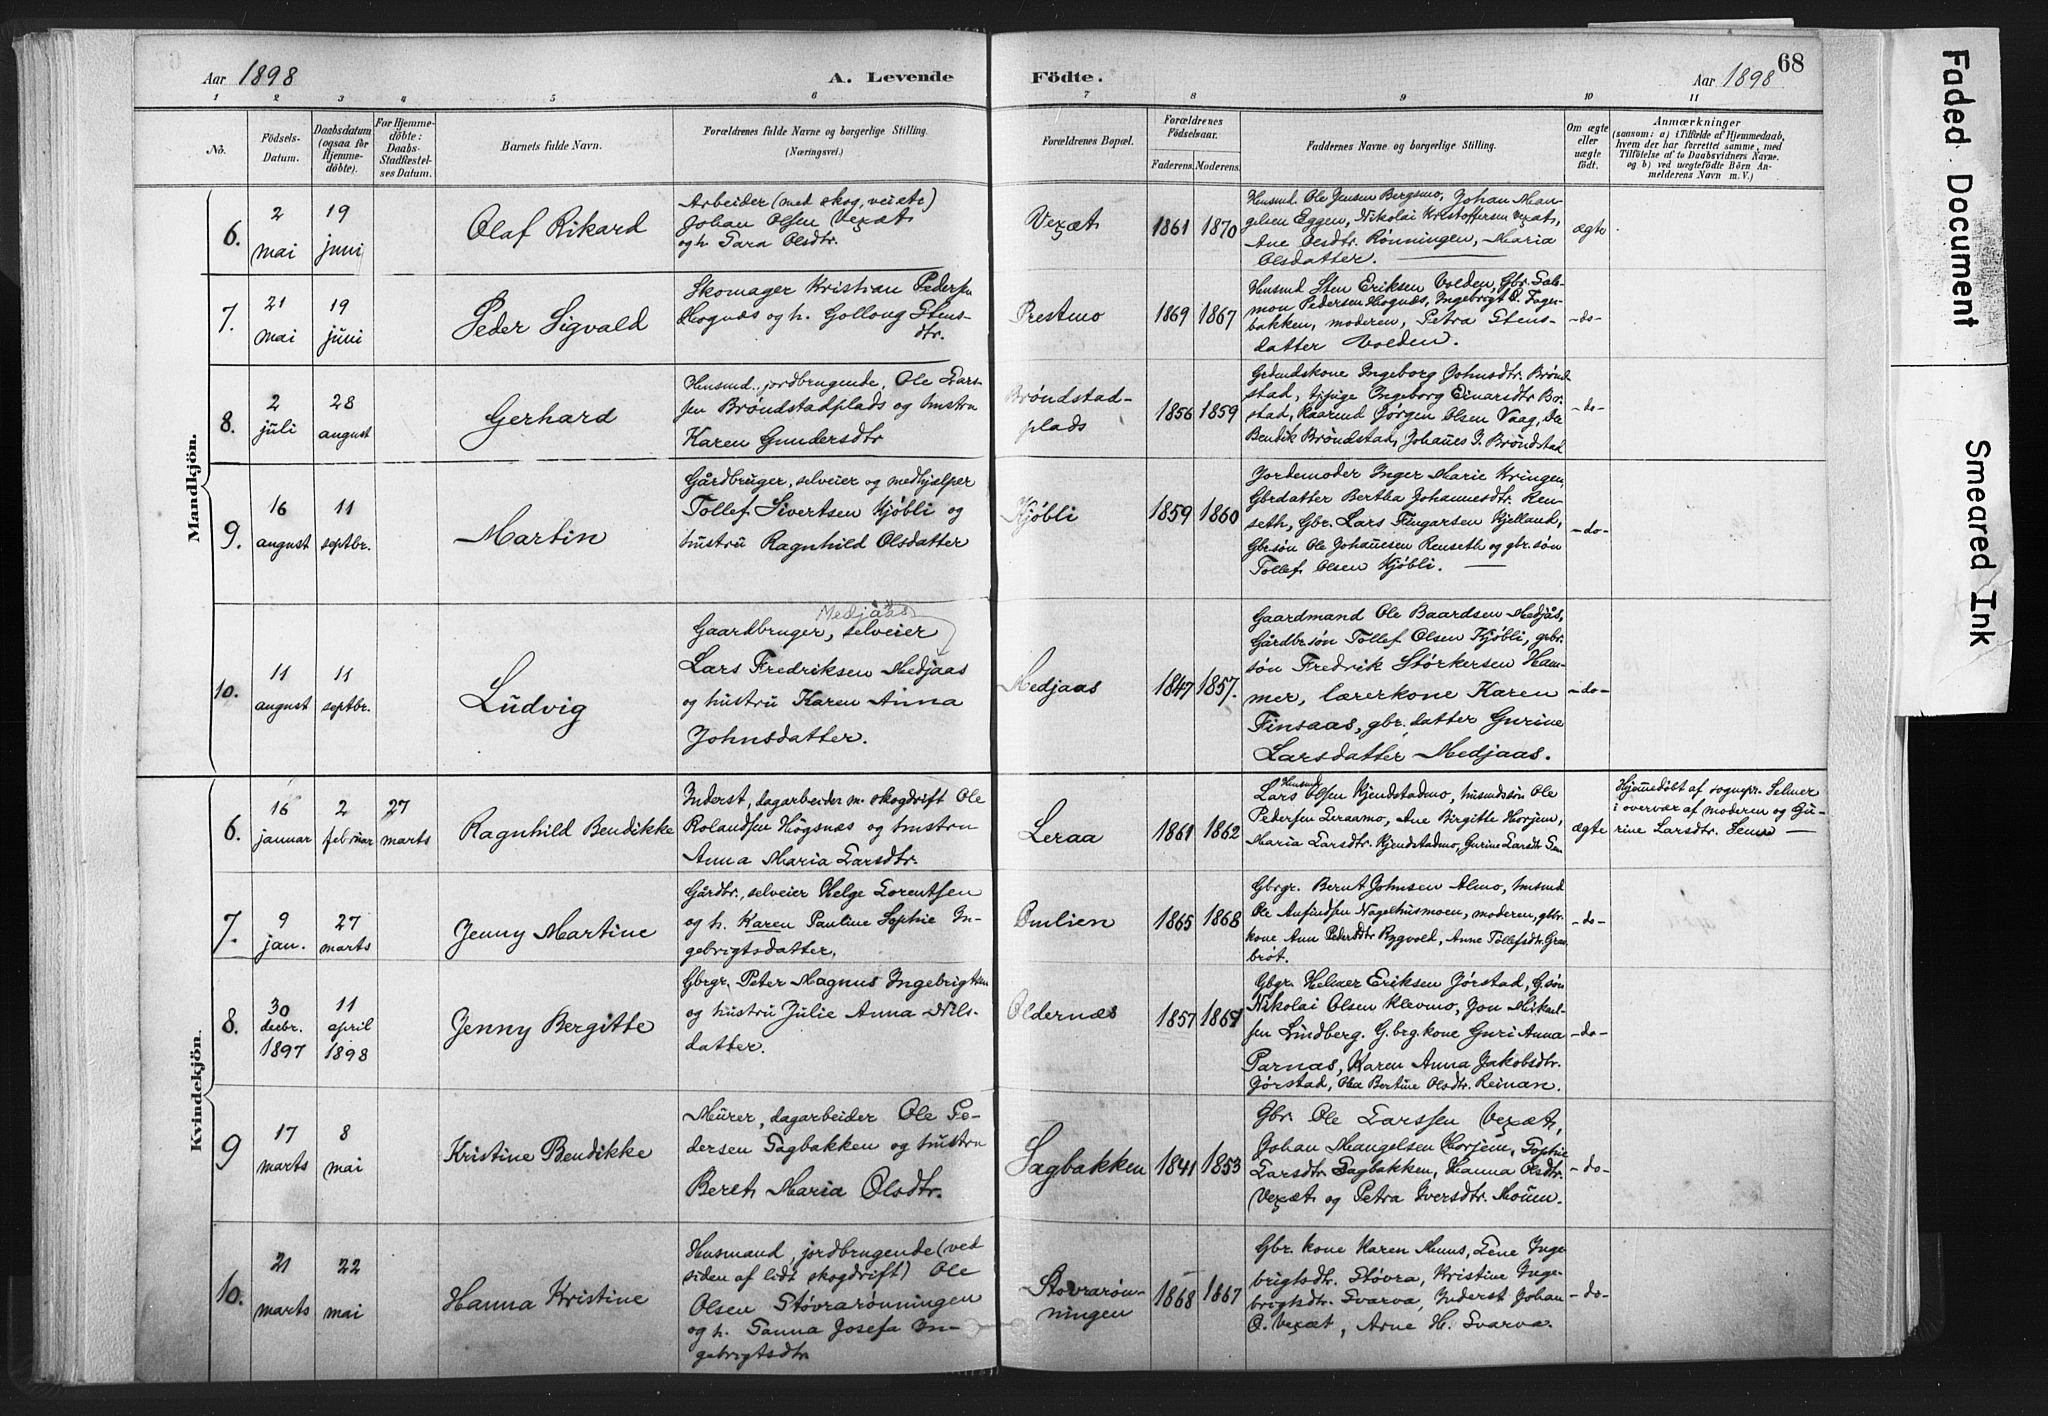 68
Aar 1898
A. Levende
Födte.
Aar 1898
1 2 3 4 5 6 7 8 9 10 11
No.
Födsels-
Datum.
Daabsdatum
(ogsaa for
Hjemme-
döbte).
For Hjemme-
döbte:
Daabs-
Stadfæstel-
ses Datum.
Barnets fulde Navn.
Forældrenes fulde Navne og borgerlige Stilling.
(Næringsvei.)
Forældrenes Bopæl.
Forældrenes
Födselsaar.
Faderens.
Moderens.
Faddernes Navne og borgerlige Stilling.
Om ægte
eller
uægte
födt.
Anmærkninger
(saasom: a) i Tilfælde af Hjemmedaab,
hvem der har forrettet samme, med
Tilföielse af to Daabsvidners Navne.
og b) ved uægtefödte Börn An-
melderens Navn m. V.)
Mandkjön.
6.
2
mai
19
juni
Olaf Rikard
Arbeider (med skog, vei etc)
Johan Olsen Vexæt
og h. Sara Olsdtr.
Vexæt
1861
1870
Husmd. Ole Jensen Bergsmo, Johan Man-
gelsen Eggen, Nikolai Kristoffersen Vexæt,
Ane Olsdtr. Rønningen, Maria
Olsdatter.
ægte
7.
21
mai
19
juni
Peder Sigvald
Skomager Kristian Pedersen
Hognæs og h. Gollong Stens-
dtr.
Prestmo
1869
1867
Husmd Sten Eriksen Volden, Gbr. Salo-
mon Pedersen Hognæs, Ingebrigt O. Fager-
bakken, moderen, Petra Stens-
datter Volden.
-do-
8.
2
juli
28
august
Gerhard
Husmd. jordbrugende, Ole Lars-
sen Brøndstadplads og hustru
Karen Gundersdtr
Brøndstad-
plads
1856
1859
Grdmdskone Ingeborg Johnsdtr. Brønd-
stad, tjpige Ingeborg Einarsdtr Bør-
stad, Kaarmd Jørgen Olsen Vaag,
Bendik Brøndstad, Johannes J. Brøndstad
-do-
9.
16
august
11
septbr.
Martin
Gårdbruger, selveier og medhjælper
Tollef Sivertsen Kjøbli og
hustru Ragnhild Olsdatter
Kjøbli
1859
1860
Jordemoder Inger Marie Kringen,
Gbrdatter Bertha Johannesdtr. Ren-
seth, Gbr. Lars Fingarsen Kjelland,
Gbr.søn Ole Johannesen Renseth og gbr.søn
Tollef Olsen Kjøbli.
-do-
10.
11
august
11
septbr.
Ludvig
Medjåas
Gaardbruger, selveier
Lars Fredriksen Medjaas
og hustru Karen Anna
Johnsdatter.
Medjaas
1847
1857.
Gaardmand Ole Baardsen Medjås,
Gårdbr.søn Tollef Olsen Kjøbli, gbr.
søn Fredrik Størkersen Ham-
mer, lærerkone Karen
Finsaas, gbr. datter Gurine
Larsdatter Medjaas.
-do-
Kvindekjön.
6.
16
januar
2
februar
27
marts
Ragnhild Bendikke
Inderst, dagarbeider m. skogdrift Ole
Rolandsen Høgsnæs og hustru
Anna Maria Larsdtr.
Leraa
1861
1862
Husmd
Lars Olsen Kjendstadmo, husmdssøn Ole
Pedersen Leraamo, Ane Birgitte Horjem,
Maria Larsdtr. Kjendstadmo, Gurine Larsdtr
ægte
Hjemmedøbt af sognepr. Selmer
i overvær af moderen og Gu-
rine Larsdtr.
7.
9
jan.
27
marts
Jenny Martine
Gårdbr., selveier Helge Lorentsen
og h. Karen Pauline Sophie In-
gebrigtsdatter.
Omlien
1865
1868
Gbrgr. Bernt Johnsen Almo, husmd
Ole Anfindsen Nagelhusmoen, moderen, gbr.
kone Ann Pedersdtr Rygvold, Anne Tollefsdtr. Grav-
brøt.
-do-
8.
30
decbr.
1897
11
april
1898
Jenny Bergitte
Gbrgr. Peter Magnus Ingebrigtsen
og hustru Julie Anna Nils-
datter.
Oldernæs
1857
1867
Gbgr. Helmer Eriksen Jørstad, G.søn
Nikolai Olsen Klevmo, Jon Mikael-
sen Lundberg. G.brg.kone Guri Anna
Parnas, Karen Anna Jakobsdtr.
Jørstad, Ola Bertine Olsdtr. Reinan.
-do-
9
17
marts
8
mai
Kristine Bendikke
Murer, dagarbeider Ole Pe-
dersen Sagbakken og hustru
Beret Maria Olsdtr.
Sagbakken
1841
1853
Gbr. Ole Larssen Vexæt,
Johan Mangelsen Horjem, Sophie
Larsdtr. Sagbakken, Hanna Olsdtr.
Vexæt og Petra Iversdtr. Moum.
-do-
10.
21
marts
22
mai
Hanna Kristine
Husmand, jordbrugende (ved
siden af lidt skogdrift) Ole
Olsen Støvrarønningen
og h. Sanna Josefa In-
gebrigtsdtr
Støvrarøn-
ningen
1868
1867
Gbr. kone Karen Muus, Lene Inge-
brigtsdtr. Støvra, Kristine Inge-
brigtsdtr. Svarva, Inderst Johan
O. Vexæt, Arne H. Svarva.
-do-
Faded Document
Smeared Ink